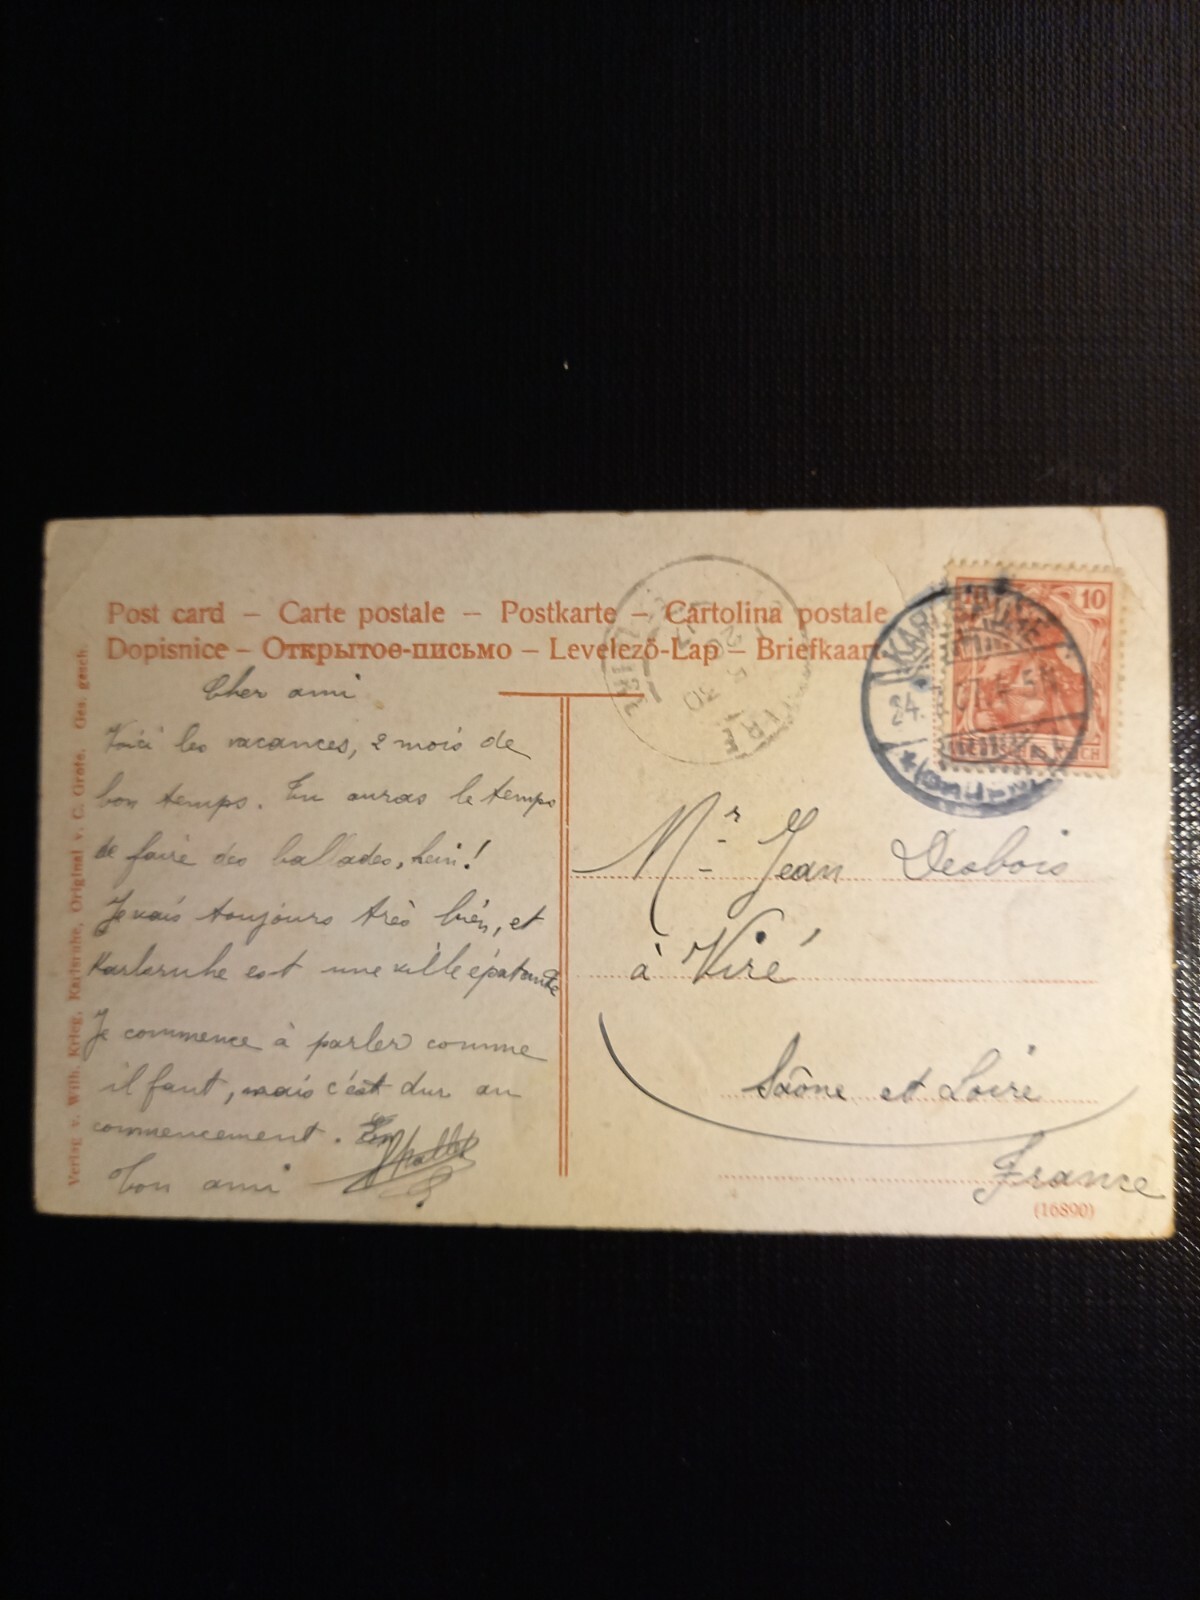 Post card – Carte postale – Postkarte – Cartolina postale
Dopisnice – Открытое-письмо – Levelező-Lap – Briefkaart
Cher ami
Voici les vacances, 2 mois de
bon temps. Tu auras le temps
de faire des ballades, hein!
Je vais toujours très bien, et
Karlsruhe est une ville épatante
Je commence à parler comme
il faut, mais c'est dur au
commencement.
Ton ami
Verlag v. Wilh. Krieg, Karlsruhe, Original v. C. Gräfe. Ges. gesch.
10
DEUTSCHES REICH
KARLSRUHE
24. 07. 4-5
Mr Jean Desbois
à Viré
Saône et Loire
France
(16890)